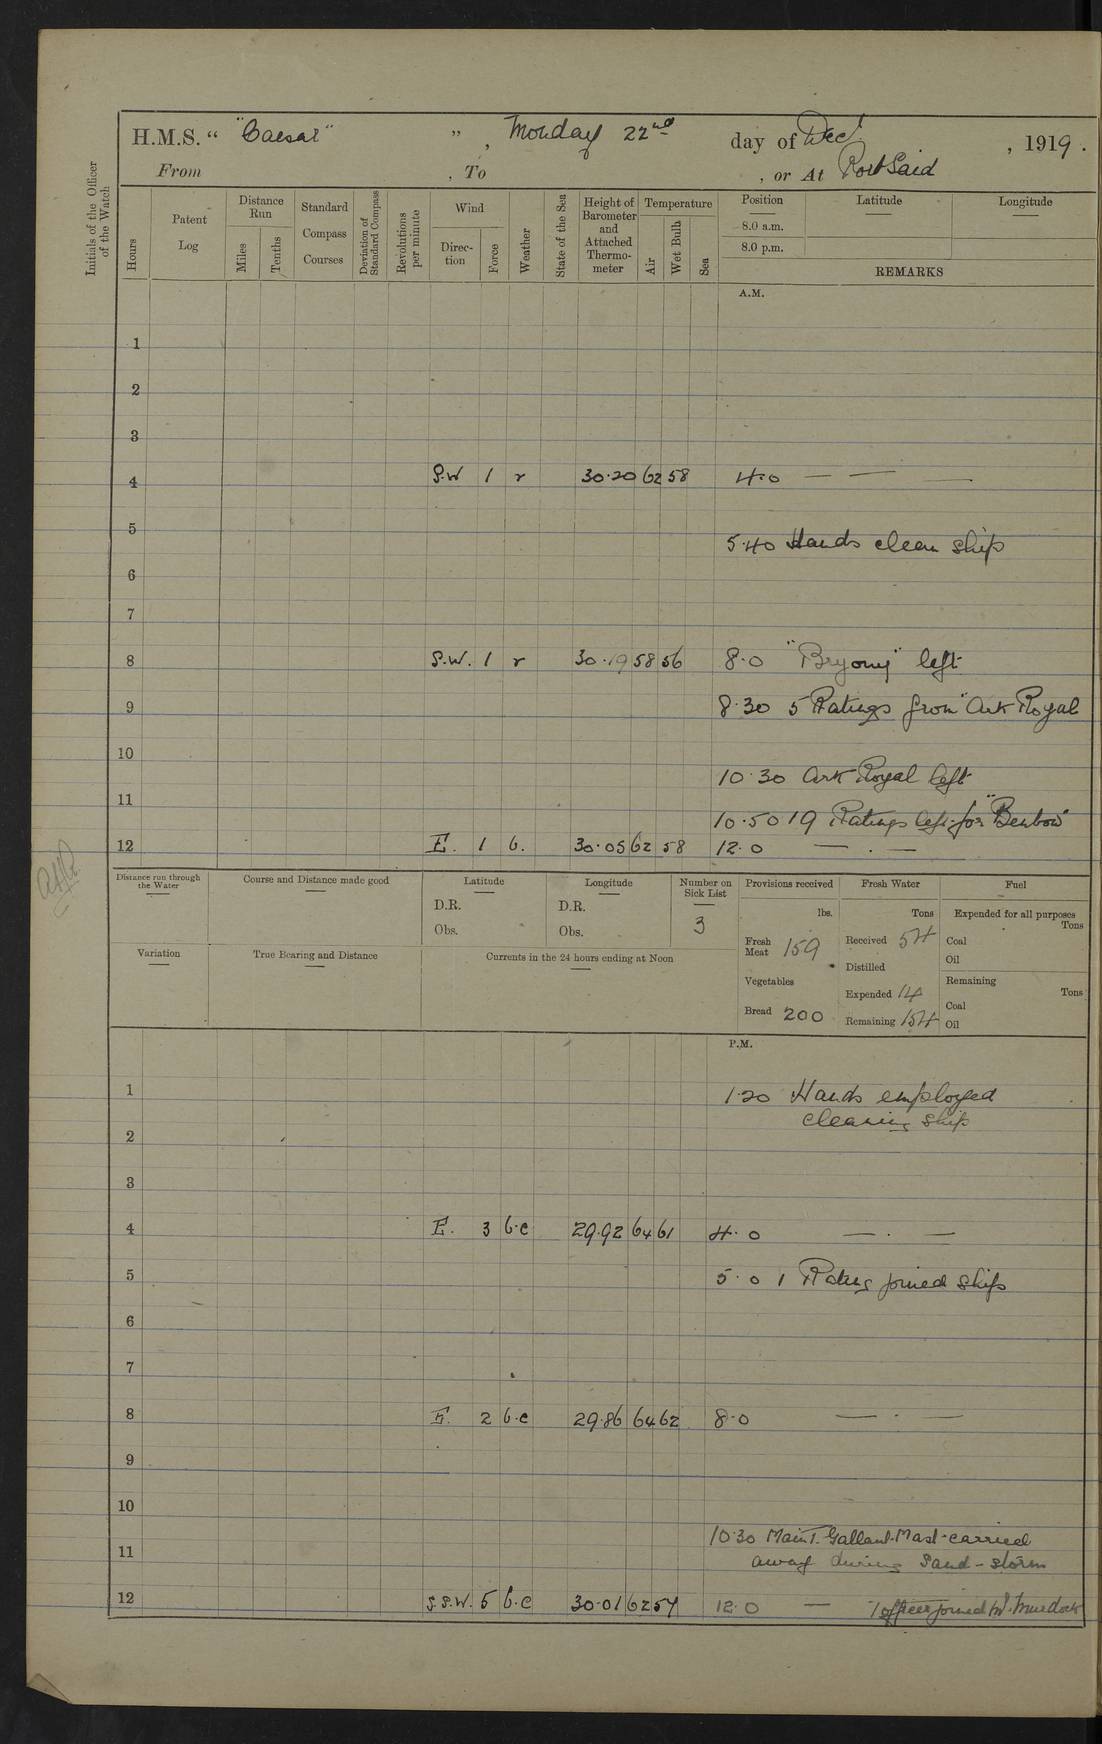 H.M.S. “ "Caesar" ”, Monday 22nd day of Decr, 1919.
From , To , or At Port Said
Initials of the Officer of the Watch
Hours
Patent Log
Distance Run
Miles
Tenths
Standard Compass Courses
Deviation of Standard Compass
Revolutions per minute
Wind
Direc-tion
Force
Weather
State of the Sea
Height of Barometer and Attached Thermo-meter
Temperature
Air
Wet Bulb
Sea
Position Latitude Longitude
8.0 a.m.
8.0 p.m.
REMARKS
A.M.
1
2
3
4 S.W 1 r 30.20 62 58 4.0 — — —
5
5.40 Hands clean ship
6
7
8 S.W. 1 r 30.19 58 56 8.0 "Bryony" left
9 8.30 5 Ratings from "Ark Royal
10
10.30 Ark Royal left
11
10.50 19 Ratings left for "Benbow"
12 E. 1 b. 30.05 62 58 12.0 — . —
Distance run through the Water
Course and Distance made good
Latitude
D.R.
Obs.
Longitude
D.R.
Obs.
Number on Sick List
3
Provisions received
lbs.
Fresh Meat 159
Vegetables
Bread 200
Fresh Water
Tons
Received 54
Distilled
Expended 14
Remaining 154
Fuel
Expended for all purposes
Tons
Coal
Oil
Remaining
Tons
Coal
Oil
Variation
True Bearing and Distance
Currents in the 24 hours ending at Noon
P.M.
1 1.20 Hands employed
cleaning ship
2
3
4 E. 3 b.c 29.92 64 61 4.0 — . —
5 5.0 1 Rating joined ship
6
7
8 E. 2 b.c 29.86 64 62 8.0 — . —
9
10
10.30 Main T. Gallant-Mast-carried
11 away during Sand-storm
12 S.S.W. 5 b.c 30.01 62 57 12.0 — 1 officer joined Mr. Murdock